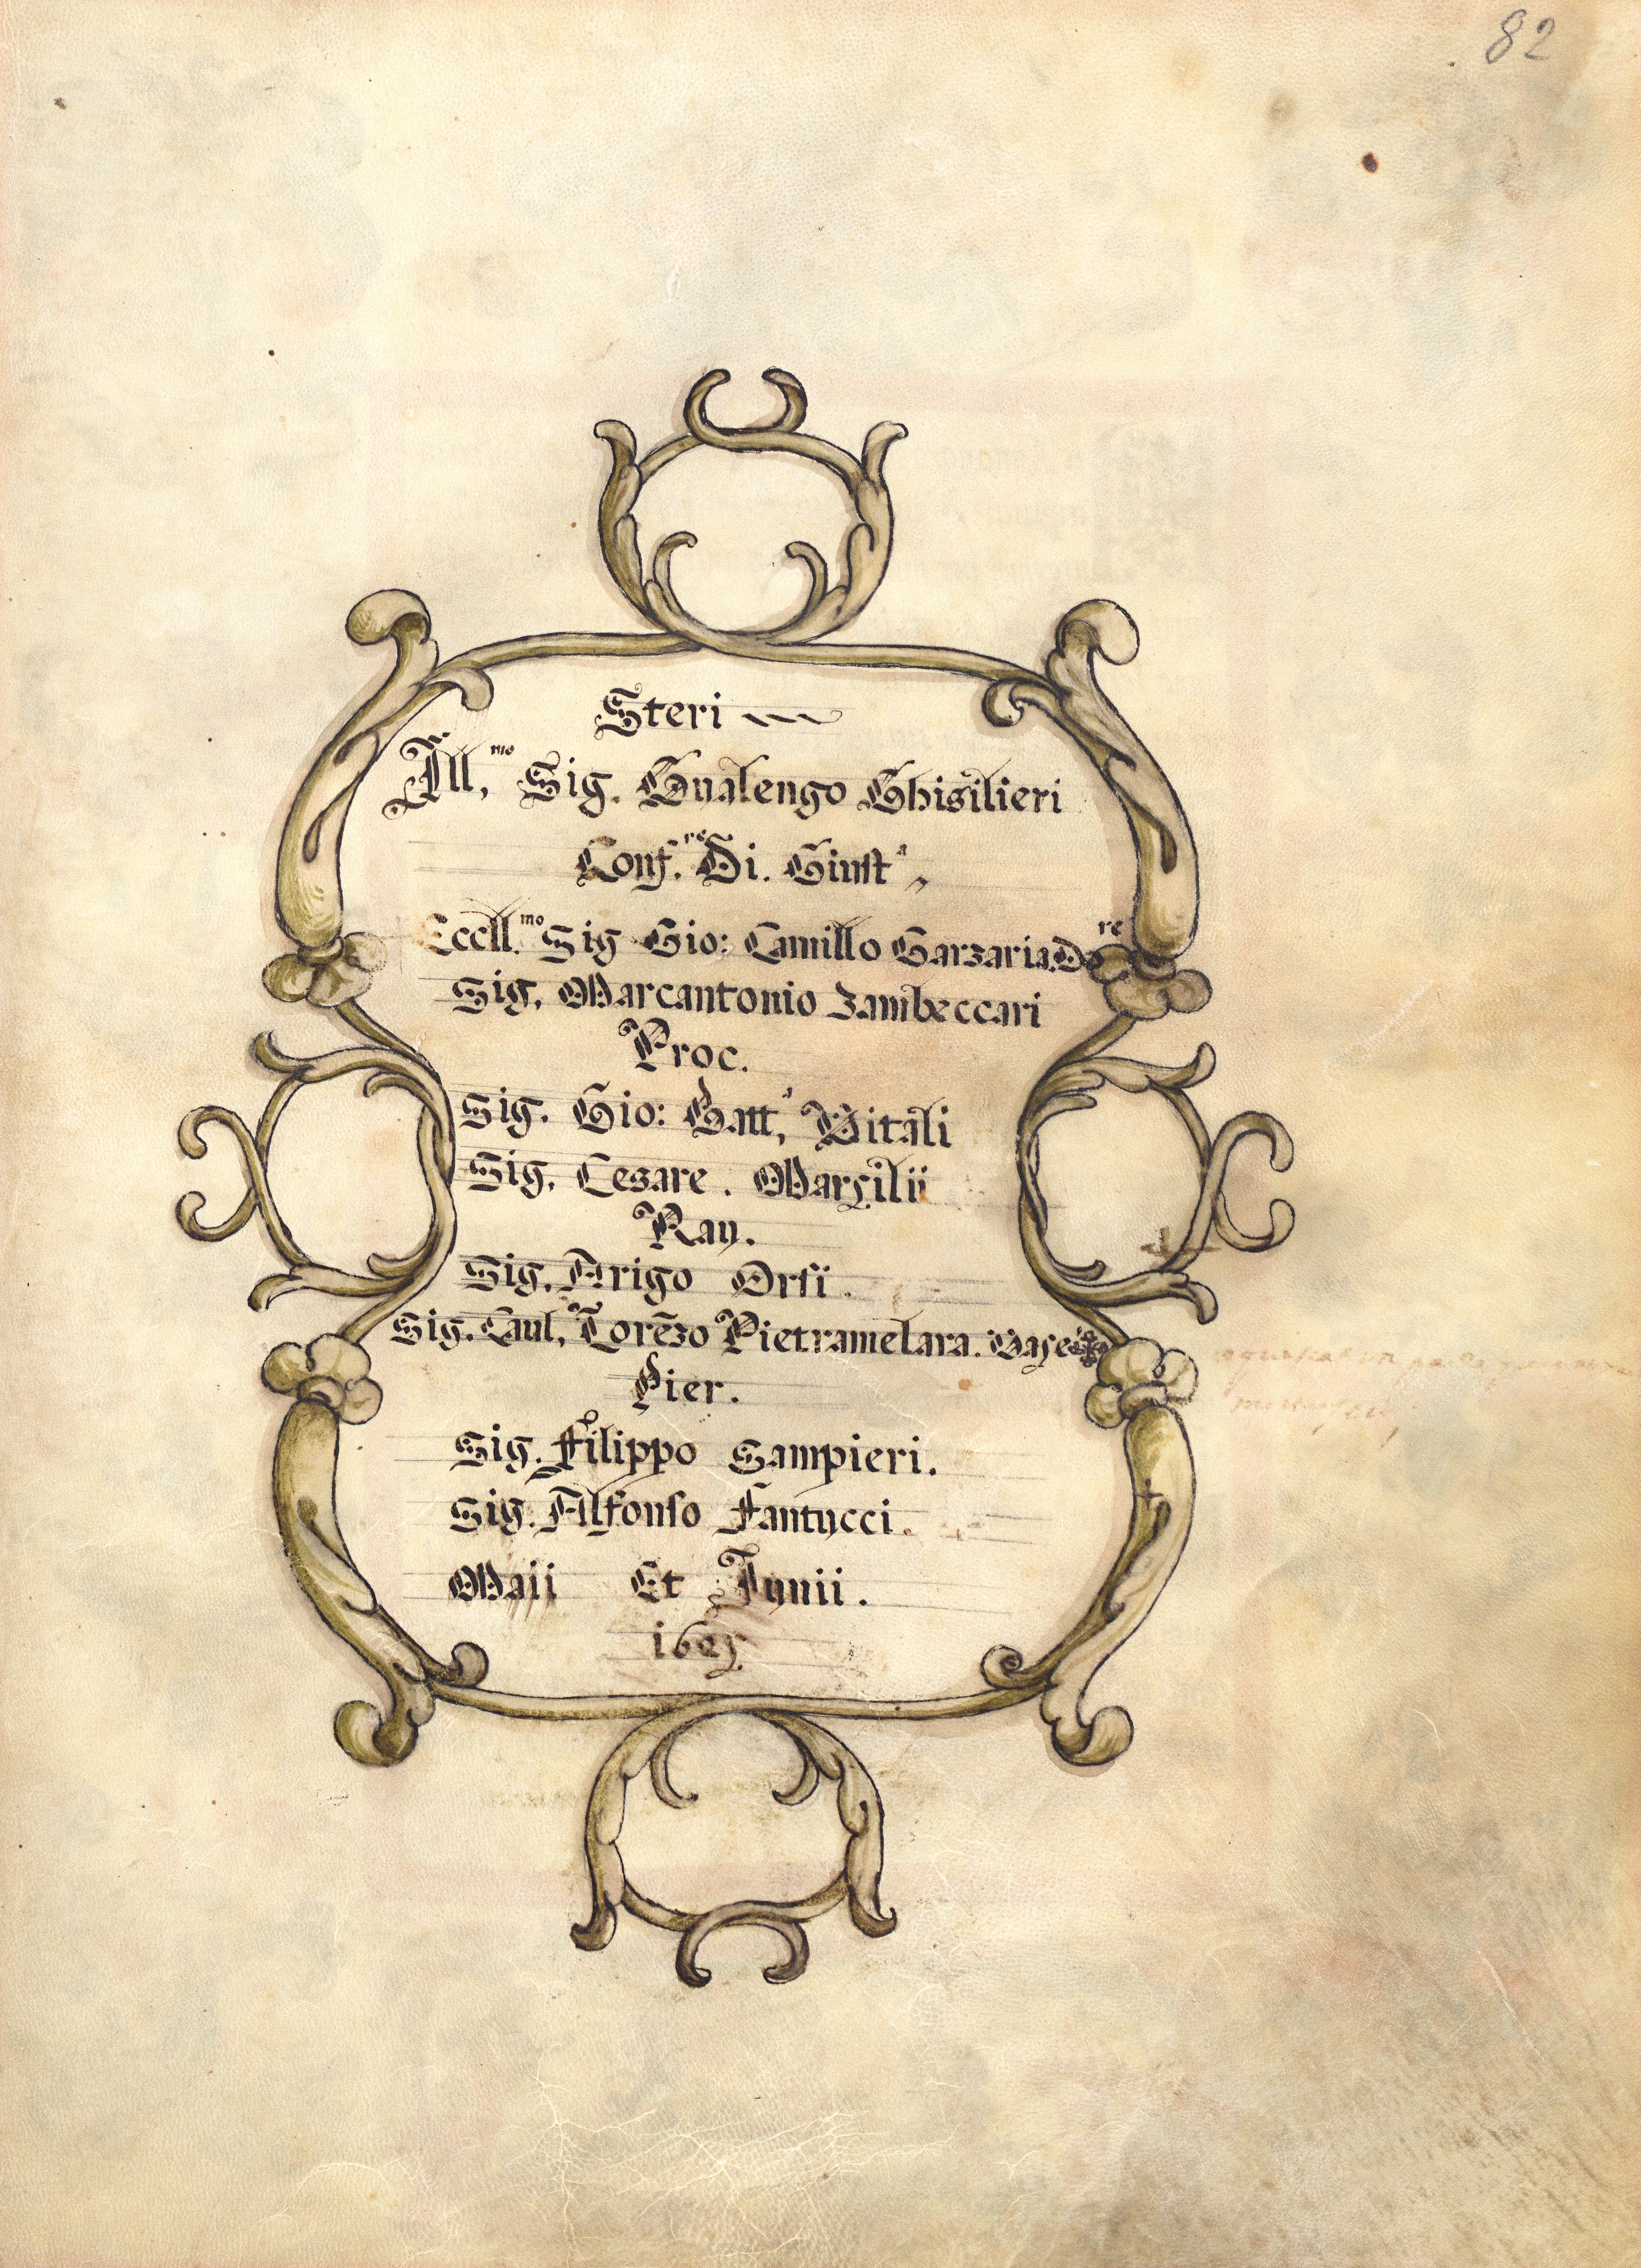 82
Steri
Ill,mo Sig. Gualengo Ghisilieri
Conf.re Di. Giustᵃ,
Eccll.mo Sig Gio: Camillo Garzaria. Dore
Sig. Marcantonio Zambeccari
Proc.
Sig. Gio: Batt,ᵃ Vitali
Sig. Cesare. Marsilii
Rav.
Sig. Arigo Orsi.
Sig. Caul,ro Lorēzo Pietramelara.
Pier.
Sig. Filippo Sampieri.
Sig. Alfonso Fantucci.
Maii Et Junii.